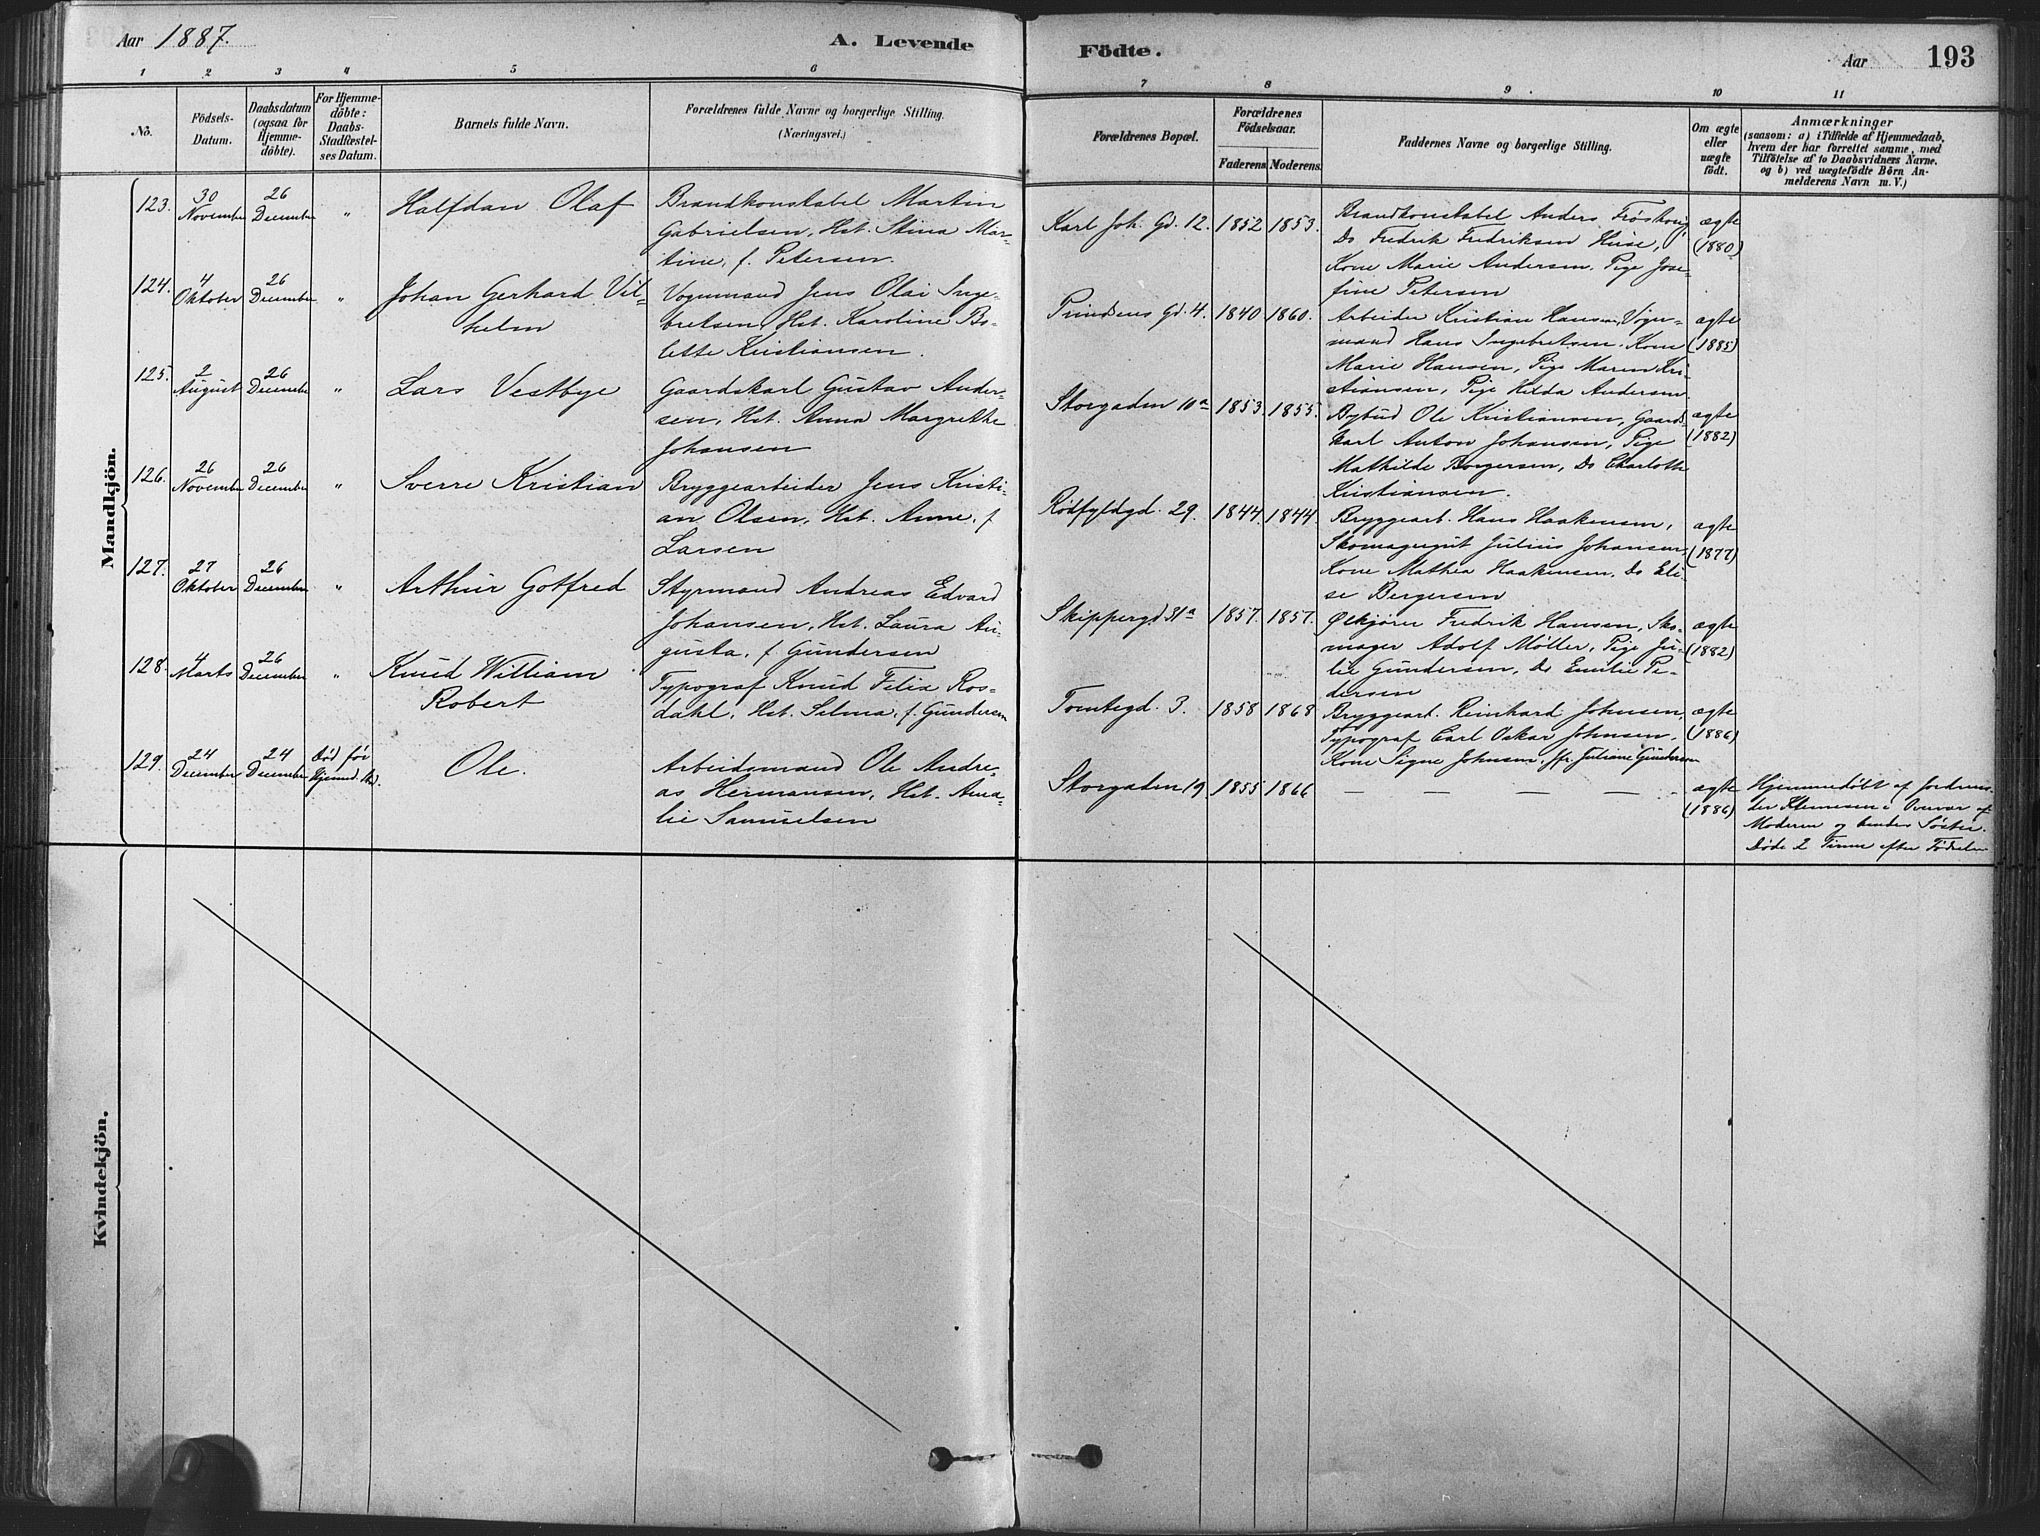 Aar 1887.
A. Levende
Födte.
Aar
193
1 2 3 4 5 6 7 8 9 10 11
No.
Födsels-
Datum.
Daabsdatum
(ogsaa for
Hjemme-
döbte).
For Hjemme-
döbte:
Daabs-
Stadfæstel-
ses Datum.
Barnets fulde Navn.
Forældrenes fulde Navne og borgerlige Stilling.
(Næringsvei.)
Forældrenes Bopæl.
Forældrenes
Födselsaar.
Faderens
Moderens.
Faddernes Navne og borgerlige Stilling.
Om ægte
eller
uægte
födt.
Anmærkninger
(saasom: a) i Tilfælde af Hjemmedaab,
hvem der har forrettet samme, med
Tilföielse af to Daabsvidners Navne.
og b) ved uægtefödte Börn An-
melderens Navn m. V.)
Mandkjön.
123.
30
November
26
December
"
Halfdan Olaf
Brandkonstabel Martin
Gabrielsen, Hst. Stina Mar-
tine, f. Petersen.
Karl Joh. Gd. 12.
1852
1853.
Brandkonstabel Anders
Do Fredrik Fredriksen Huse,
Kone Marie Andersen, Pige Jose-
fine Petersen
ægte
(1880)
124.
4
Oktober
26
December
"
Johan Gerhard Vil-
helm
Vognmand Jens Olai Inge-
bretsen, Hst. Karoline Bo-
lette Kristiansen.
Prindsens Gd. 4.
1840
1860.
Arbeider Kristian Hansen, Vogn-
mand Hans Ingebretsen. Kone
Marie Hansen, Pige Maren Kri-
stiansen, Pige Hilda Andersen
ægte
(1885)
125.
2
August
26
December
"
Lars Vestbye
Gaardskarl Gustav Ander-
sen, Hst. Anna Margrethe
Johansen
Storgaden 10a
1853
1855.
Bybud Ole Kristiansen, Gaards-
karl Anton Johansen, Pige
Mathilde Borgersen, Do Charlotte
Kristiansen.
ægte
(1882)
126.
26
November
26
December
"
Sverre Kristian
Bryggearbeider Jens Kristi-
an Olsen, Hst. Anne, f
Larsen
Rødfyldgd. 29.
1844
1844
Bryggearb. Hans Haakensen,
Skomagergut Julius Johansen,
Kone Mathea Haakensen, Do Eli-
se Bergersen
ægte
(1877)
127.
27
Oktober
26
December
"
Arthur Gotfred
Styrmand Andreas Edvard
Johansen, Hst. Laura Au-
gusta, f. Gundersen
Skippergd 31a
1857.
1857.
Ølkjører Fredrik Hansen, Sko-
mager Adolf Møller, Pige Ju-
lie Gundersen, Do Emilie Pe-
dersen
ægte
(1882)
128.
4
Marts
26
December
"
Knud William
Robert
Typograf Knud Felix Ros-
dahl, Hst. Selma, f. Gundersen
Tomtegd. 3.
1858
1868
Bryggearb. Reinhard Johnsen,
Typograf Carl Oskar Johnsen,
Kone Signe Johnsen. Juliane Gundersen
ægte
(1886)
129.
24
December
24
December
Død før
Ole.
Arbeidsmand Ole Andre-
as Hermansen, Hst. Ama-
lie Samuelsen
Storgaden 19.
1855
1866
— — — — —
ægte
(1886)
Hjemmedøbt af Jordemo-
der i Overvær af
Moderen og hendes Søster.
Døde 2 Timer efter Fødselen
Kvindekjön.